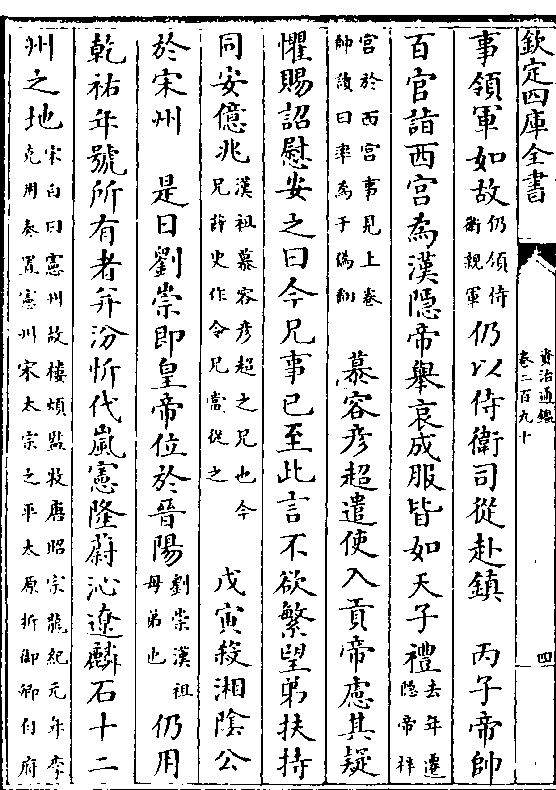 欽定四庫全書
資治通鑑
卷二百九十
四
事領軍如故仍領侍衛親軍仍以侍衛司從赴鎮　丙子帝帥
百官詣西宮為漢隱帝舉哀成服皆如天子禮去年遷隱帝梓
宮於西宮事見上卷帥讀曰率為于偽翻　慕容彦超遣使入貢帝慮其疑
懼賜詔慰安之曰今兄事已至此言不欲繁望弟扶持
同安億兆漢祖慕容彦超之兄也今兄薛史作令兄當從之　戊寅殺湘隂公
於宋州　是日劉崇即皇帝位於晉陽劉崇漢祖母弟也仍用
乾祐年號所有者并汾忻代嵐憲隆蔚沁遼麟石十二
州之地宋白曰憲州故樓煩監牧唐昭宗龍紀元年李克用奏置憲州宋太宗之平太原折御卿自府